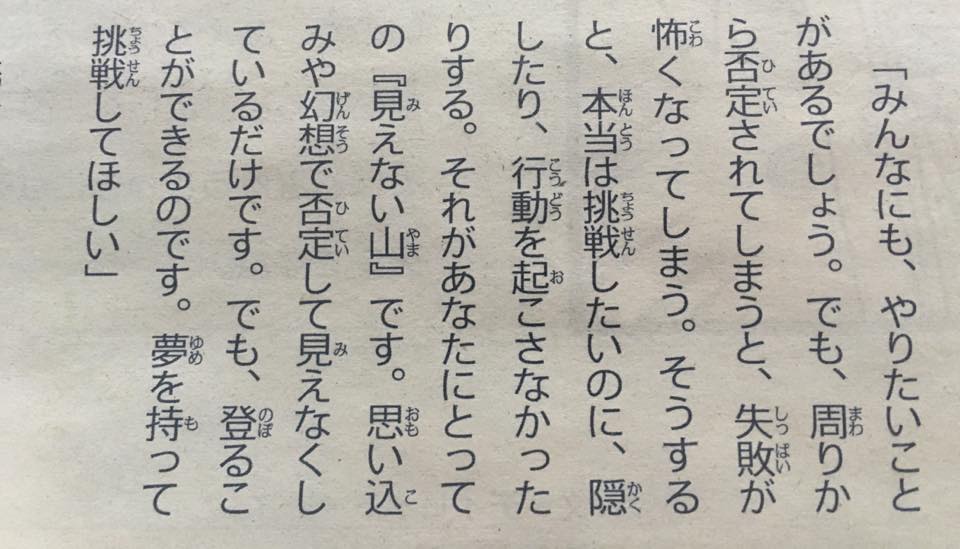 「みんなにも、やりたいこと
があるでしょう。でも、周りか
ら否定されてしまうと、失敗が
怖くなってしまう。そうする
と、本当は挑戦したいのに、隠
したり、行動を起こさなかった
りする。それがあなたにとって
の『見えない山』です。思い込
みや幻想で否定して見えなくし
ているだけです。でも、登るこ
とができるのです。夢を持って
挑戦してほしい」